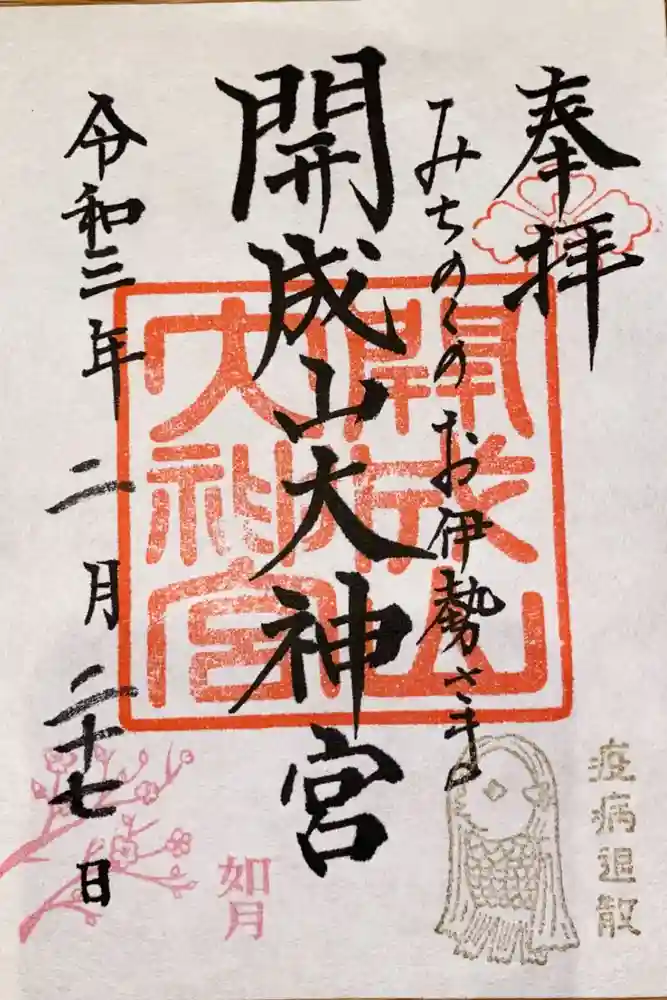 奉拝
みちのくのお伊勢さま
開成山大神宮
開成山
大神宮
令和三年二月二十七日
疫病退散
如月